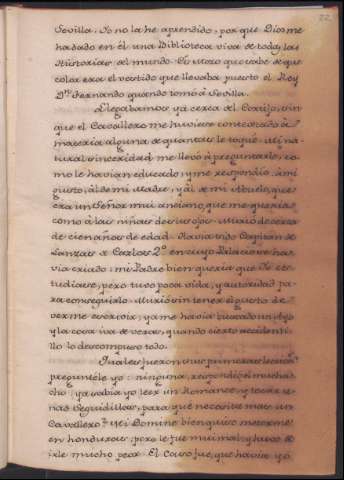 22
Sevilla. Yo no la he aprendido, por que Dios me
ha dado en él una Biblioteca viva de todas las
Historias del mundo. Es Mozo que sabe de que
color era el vestido que llevaba puesto el Rey
Dn. Fernando quando tomó a Sevilla.
Llegabamos ya cerca del Cortijo, sin
que el Cavallero me huviese contestado à
materia alguna de quantas le toquè. Mi na-
tural sinceridad me llevó à preguntarle, co-
mo le havian educado; y me respondió: à mi
gusto, al de mi Madre, y al de mi Abuelo, que
era un Señor mui anciano, que me queria
como à las niñas de sus ojos. Murió de cerca
de cien años de edad. Havia sido Capitan de
Lanzas de Carlos 2º en cuyo Palacio se ha-
via criado: mi Padre bien queria que Yo es-
tudiase, pero tuvo poca vida, y autoridad pa-
ra conseguirlo. Murió sin tener el gusto de
verme escribir; ya me havia buscado un Ayo
y la cosa iva de veras, quando cierto accidenti-
llo lo descompuso todo.
Quales fueron sus primeras lecciones
preguntéle yo: ninguna, respondió el mucha-
cho: ya sabia yo leer un Romance, y tocar u-
nas Seguidillas; para què necesita mas un
Cavallero? Mi Domine bien quiso meterme
en honduras; pero le fue mui mal, y huvo de
irle mucho peor. El caso fue, que havia yò